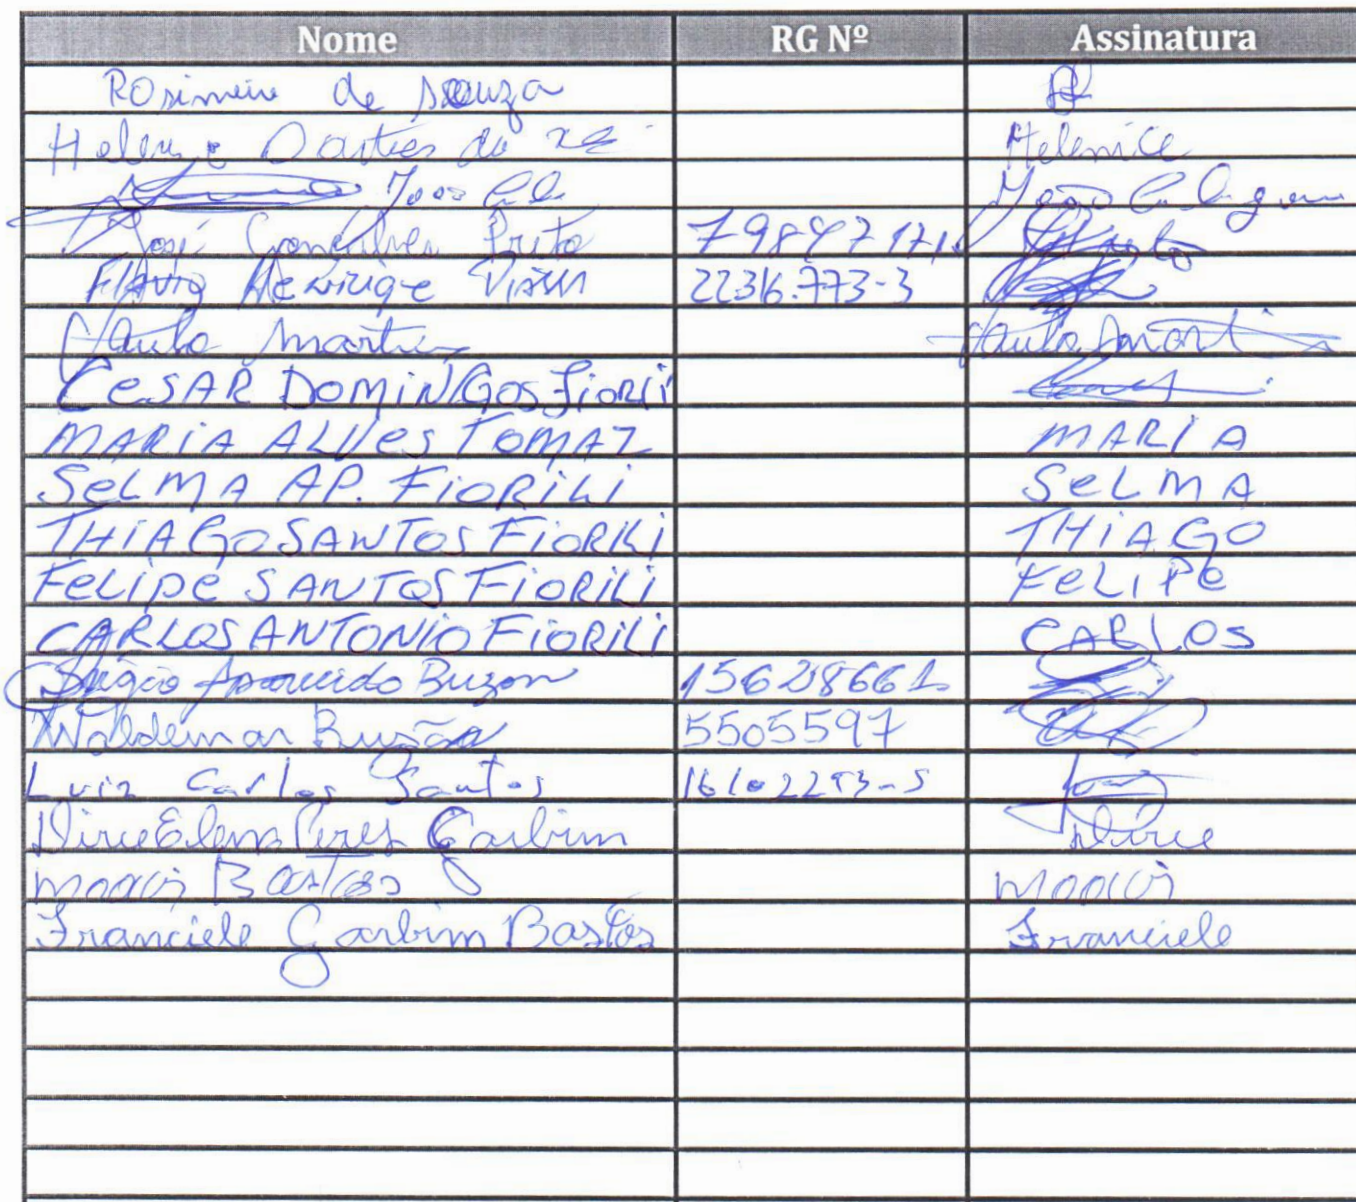 Nome RG Nº Assinatura
Rosimeire de Souza
Helenice do Helenice
João João
José Gonçalves Preto
Flavio Henrique 2236.773-3
Paulo Martins Paulo Martins
CESAR DOMINGOS Fiorili
MARIA ALVES TOMAZ MARIA
SELMA AP. FIORILI SELMA
THIAGO SANTOS FIORILI THIAGO
FELIPE SANTOS FIORILI FELIPE
CARLOS ANTONIO FIORILI CARLOS
Sergio Aparecido Buzon 156286661
Waldemar 5505597
Luiz Carlos Santos
Dirce Elena Peres Garbim Dirce
Moacir Bastos Moacir
Franciele Garbim Bastos Franciele